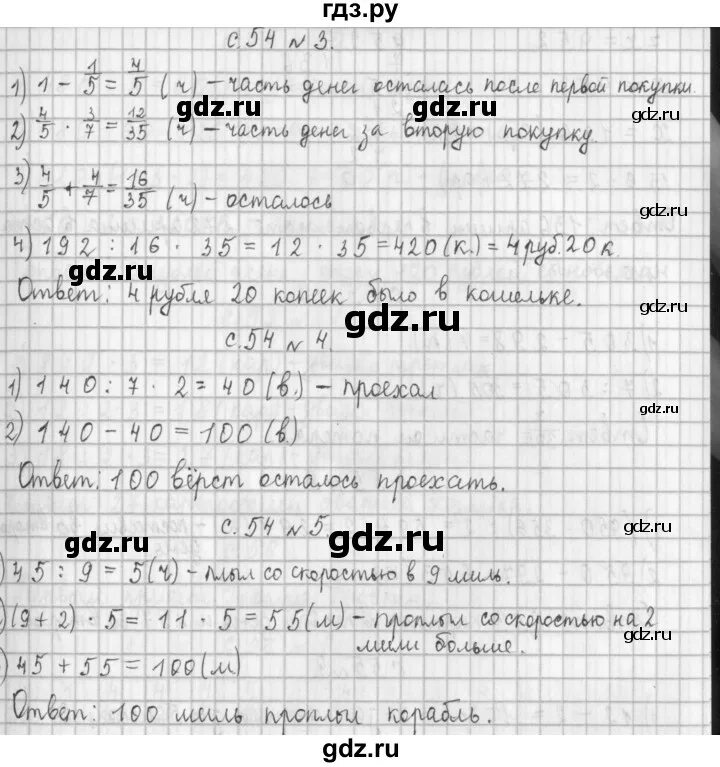 гдз.ру
с. 54 № 3.
1) 1 - 1/5 = 4/5 (ч) - часть денег осталась после первой покупки.
gdz.ru
gdz.ru
2) 4/5 · 3/7 = 12/35 (ч) - часть денег за вторую покупку.
gdz.ru
3) 4/5 + 4/7 = 16/35 (ч) - осталось
gdz.ru
4) 192 : 16 · 35 = 12 · 35 = 420 (к.) = 4 руб. 20 к.
gdz.ru
Ответ: 4 рубля 20 копеек было в кошельке.
gdz.ru
gdz.ru
с. 54 № 4.
1) 140 : 7 · 2 = 40 (в.) - проехал
gdz.ru
2) 140 - 40 = 100 (в.)
Ответ: 100 вёрст осталось проехать.
gdz.ru
с. 54 № 5
gdz.ru
gdz.ru
) 45 : 9 = 5 (ч) - плыл со скоростью в 9 миль.
) (9 + 2) · 5 = 11 · 5 = 55 (м) - проплыл со скоростью на 2
мили больше.
gdz.ru
) 45 + 55 = 100 (м)
Ответ: 100 миль проплыл корабль.
gdz.ru
gdz.ru